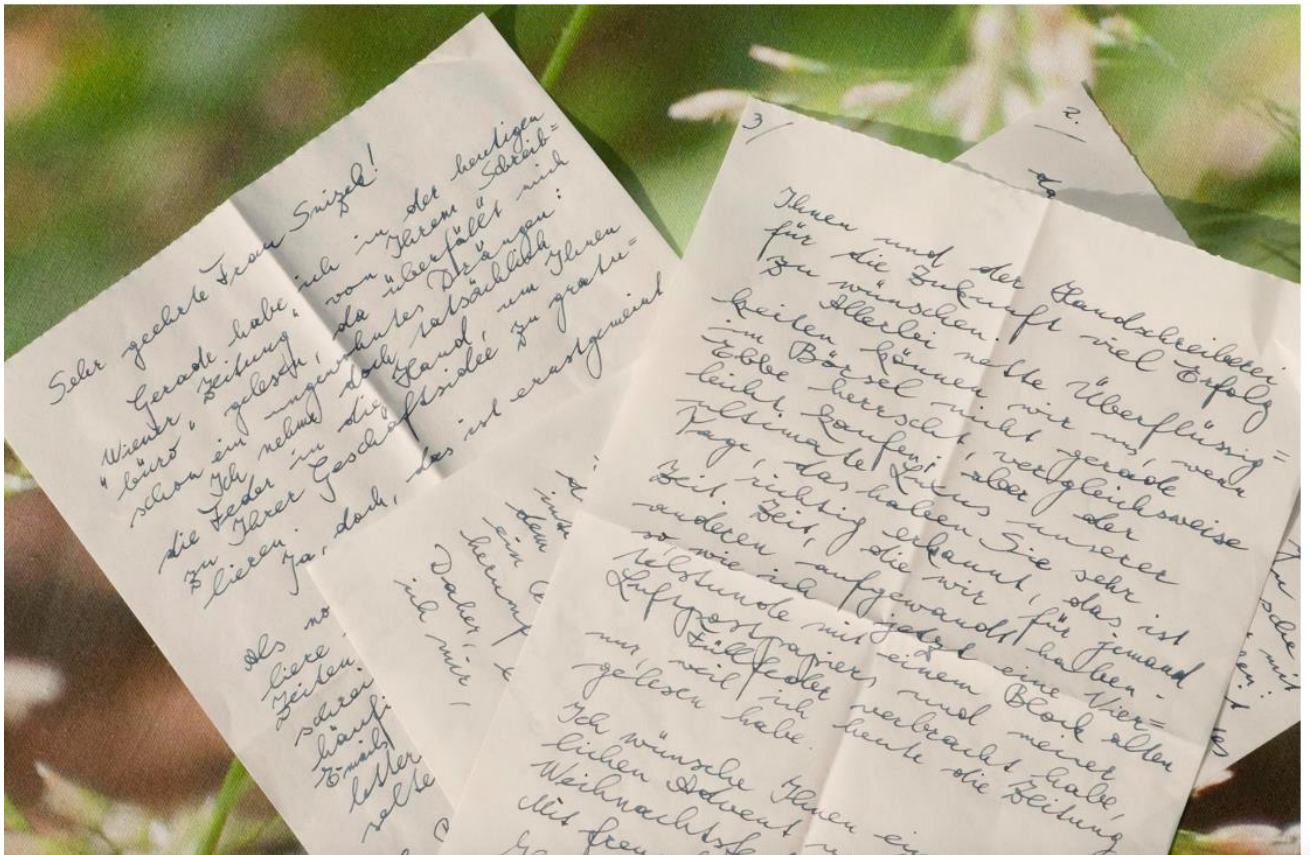 Sehr geehrte Frau Snizek!
Gerade habe ich in der heutigen
"Wiener Zeitung" von Ihrem "Schreib=
büro" gelesen, da überfällt mich
schon ein ungewohntes Drängen:
Ich nehme doch tatsächlich
die Feder in die Hand, um Ihnen
zu Ihrer Geschäftsidee zu gratu=
lieren. Ja, doch, das ist ernstgemeint
Als
liere
Zeiten.
schrei
häufi
Emails
letter
selte
dem
ein
herum
Daher,
ich mir,
2.
3/
Ihnen und der Handschreiberei
für die Zukunft viel Erfolg
zu wünschen.
Allerlei nette Überflüssig=
keiten können wir uns, wenn
im Börsel nicht gerade
Ebbe herrscht, vergleichsweise
leicht kaufen; aber der
ultimate Luxus unserer
Tage, das haben Sie sehr
richtig erkannt, das ist
Zeit. Zeit, die wir für jemand
anderen aufgewandt haben.
so wie ich jetzt eine Vier=
telstunde mit einem Block alten
Luftpostpapiers und meiner
Füllfeder verbracht habe,
nur weil ich heute die Zeitung
gelesen habe.
Ich wünsche Ihnen ein
lichen Advent
Weihnachtsfe
Mit freu